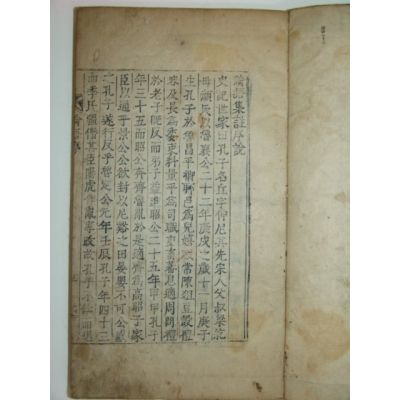 論語集註序說
史記世家曰孔子名丘字仲尼其先宋人父叔梁紇
母顏氏以魯襄公二十二年庚戌之歲十一月庚子
生孔子於魯昌平鄉陬邑爲兒嬉戲常陳俎豆設禮
容及長爲委吏料量平爲司職吏畜蕃息適周問禮
於老子旣反而弟子益進昭公二十五年甲申孔子
年三十五而昭公奔齊魯亂於是適齊爲高昭子家
臣以通乎景公公欲封以尼谿之田晏嬰不可公惑
之孔子遂行反乎魯定公元年壬辰孔子年四十三
而季氏强僭其臣陽虎作亂專政故孔子不仕而退